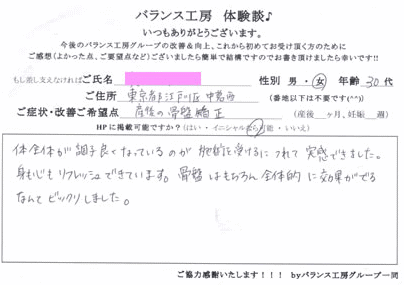 バランス工房 体験談♪
いつもありがとうございます。
今後のバランス工房グループの改善&向上、これから初めてお受け頂く方のために
ご感想(よかった点、ご要望点など)ございましたら簡単で結構ですのでお書き頂けましたら幸いです!!
もし差し支えなければご氏名 性別 男・女 年齢 30代
ご住所 東京都江戸川区中葛西 (番地以下は不要です(^^)
ご症状・改善ご希望点 産後の骨盤矯正 (産後 ヶ月、妊娠 週)
HPに掲載可能ですか?(はい・イニシャルなら可能・いいえ)
体全体が調子良くなっているのが施術を受けるにつれて実感できました。
身も心もリフレッシュできています。骨盤はもちろん全体的に効果がでる
なんてビックリしました。
ご協力感謝いたします!!! byバランス工房グループ一同